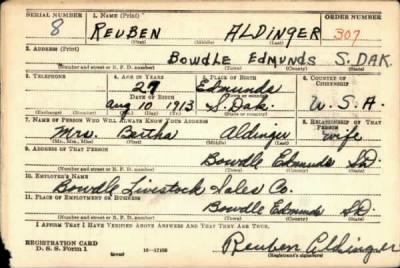 SERIAL NUMBER 1. NAME (Print) ORDER NUMBER
8 REUBEN ALDINGER 307
(First) (Middle) (Last)
2. ADDRESS (Print)
BOWDLE EDMUNDS S. DAK.
(Number and street or R. F. D. number) (Town) (County) (State)
3. TELEPHONE 4. AGE IN YEARS 5. PLACE OF BIRTH 6. COUNTRY OF CITIZENSHIP
27 Edmunds
DATE OF BIRTH (Town or county)
Aug 10 1913 S. Dak. U. S. A.
(Exchange) (Number) (Mo.) (Day) (Yr.) (State or country)
7. NAME OF PERSON WHO WILL ALWAYS KNOW YOUR ADDRESS 8. RELATIONSHIP OF THAT PERSON
Mrs. Bertha Aldinger wife
(Mr., Mrs., Miss) (First) (Middle) (Last)
9. ADDRESS OF THAT PERSON
Bowdle Edmunds S.D.
(Number and street or R. F. D. number) (Town) (County) (State)
10. EMPLOYER'S NAME
Bowdle Livestock Sales Co.
11. PLACE OF EMPLOYMENT OR BUSINESS
Bowdle Edmunds S.D.
(Number and street or R. F. D. number) (Town) (County) (State)
I AFFIRM THAT I HAVE VERIFIED ABOVE ANSWERS AND THAT THEY ARE TRUE.
REGISTRATION CARD
D. S. S. Form 1 Reuben Aldinger
(Registrant's signature)